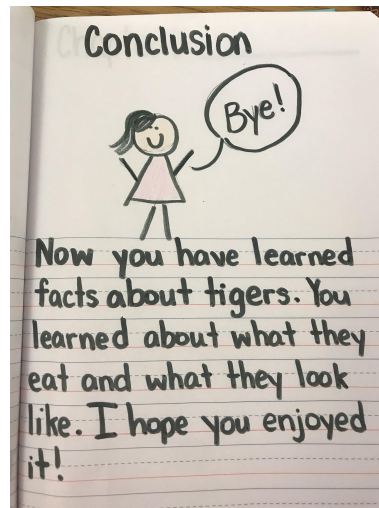 Conclusion
Bye!
Now you have learned
facts about tigers. You
learned about what they
eat and what they look
like. I hope you enjoyed
it!